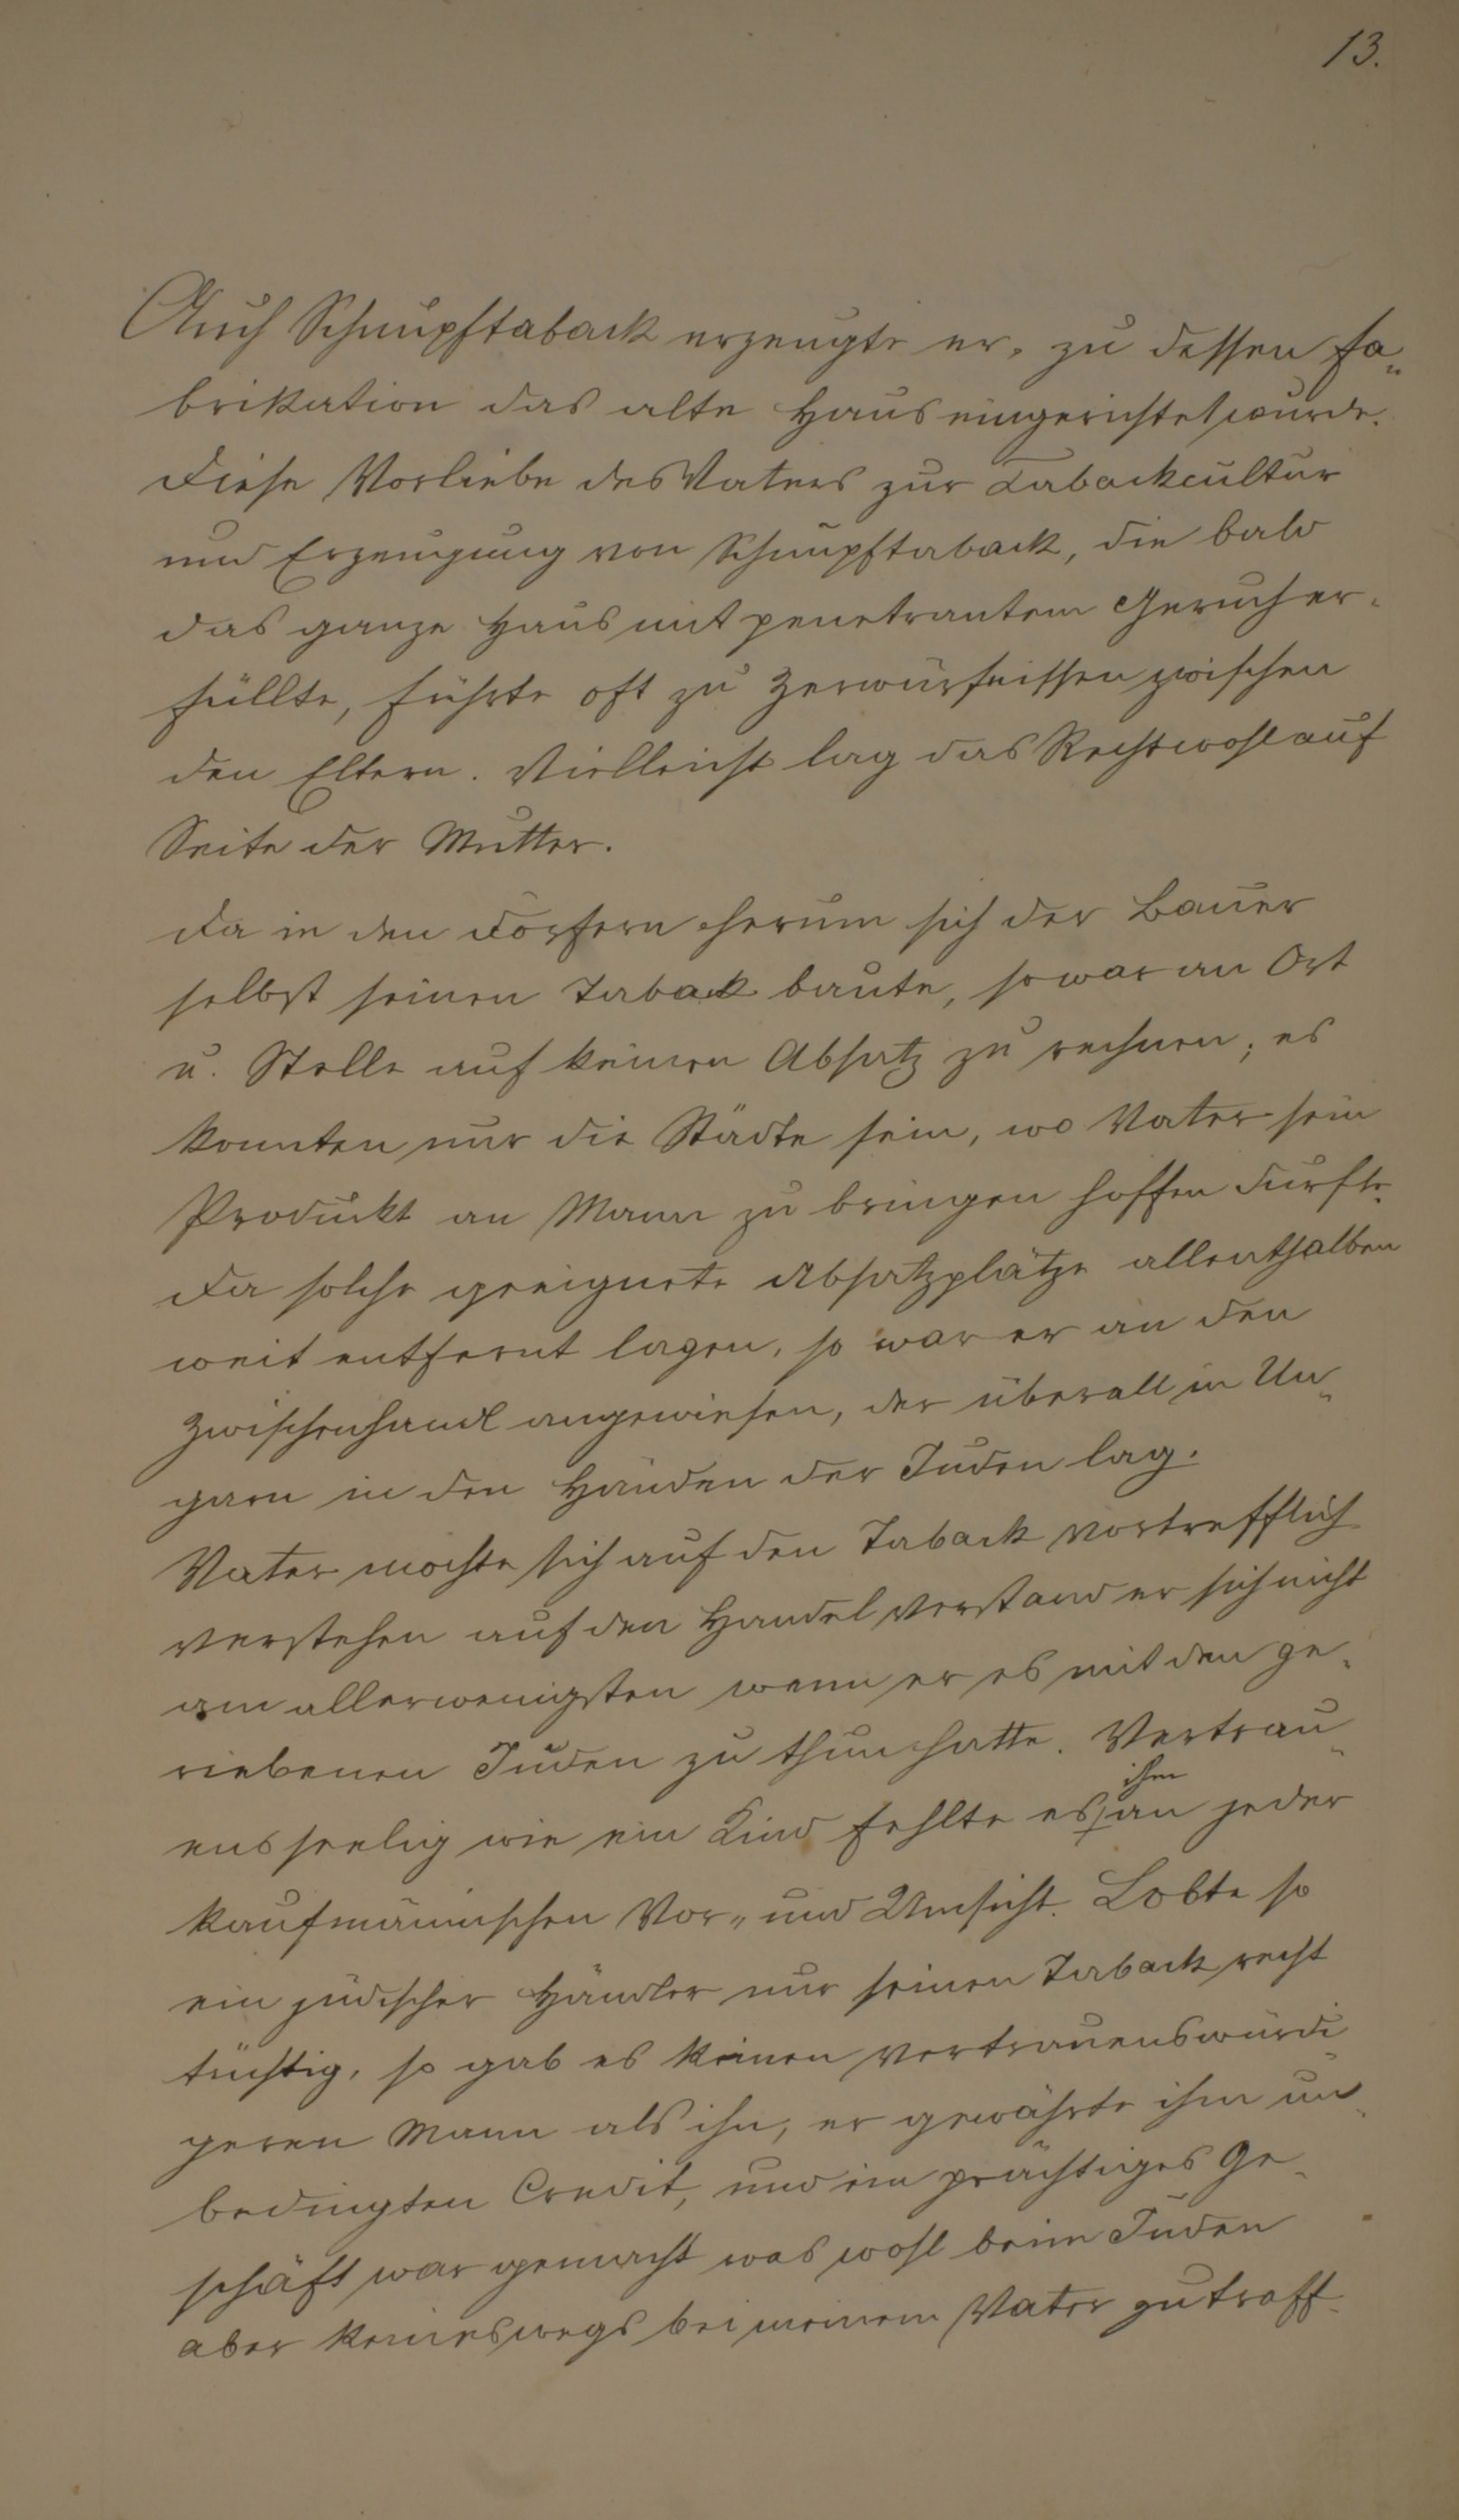 13.
Auch Schnupftaback erzeugte er, zu dessen Fa„
brikation das alte Haus eingerichtet wurde.
Diese Vorliebe des Vaters zur Tabackcultur
und Erzeugung von Schnupftaback, die bald
das ganze Haus mit penetrantem Geruch er„
füllte, führte oft zu Zerwürfnissen zwischen
den Eltern. Vielleicht lag das Recht wohl auf
Seite der Mutter.
Da in den Dörfern herum sich der Bauer
selbst seinen Taback baute, so war an Ort
u. Stelle auf keinen Absatz zu rechnen; es
konnten nur die Städte sein, wo Vater sein
Produkt an Mann zu bringen hoffen durfte.
Da solche geeignete Absatzplätze allenthalben
weit entfernt lagen, so war er an den
Zwischenhandl angewiesen, der überall in Un„
garn in den Händen der Juden lag.
Vater mochte sich auf den Taback vortrefflich
verstehen auf den Handel verstand er sich nicht
am allerwenigsten wenn er es mit den ge„
riebenen Juden zu thun hatte. Vertrau„
ensseelig wie ein Kind fehlte es ihm an jeder
kaufmännischen Vor„ und Umsicht. Lobte so
ein jüdischer Händler nur seinen Taback recht
tüchtig, so gab es keinen vertrauenswürdi„
geren Mann als ihn, er gewährte ihm un„
bedingten Credit, und ein prächtiges Ge„
schäft war gemacht was wohl beim Juden
aber keineswegs bei meinem Vater zutraff.